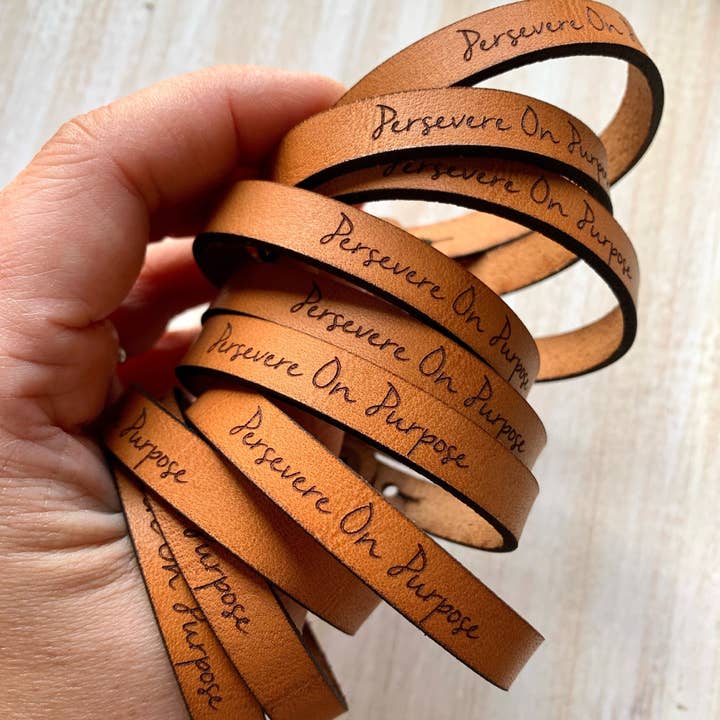 Persevere On Pur
Persevere On Purpose
Persevere On Purpose
Persevere On Purpose
Persevere On Purpose
Persevere On Purpose
Persevere On Purpose
Purpose
Purpose
On Purpose